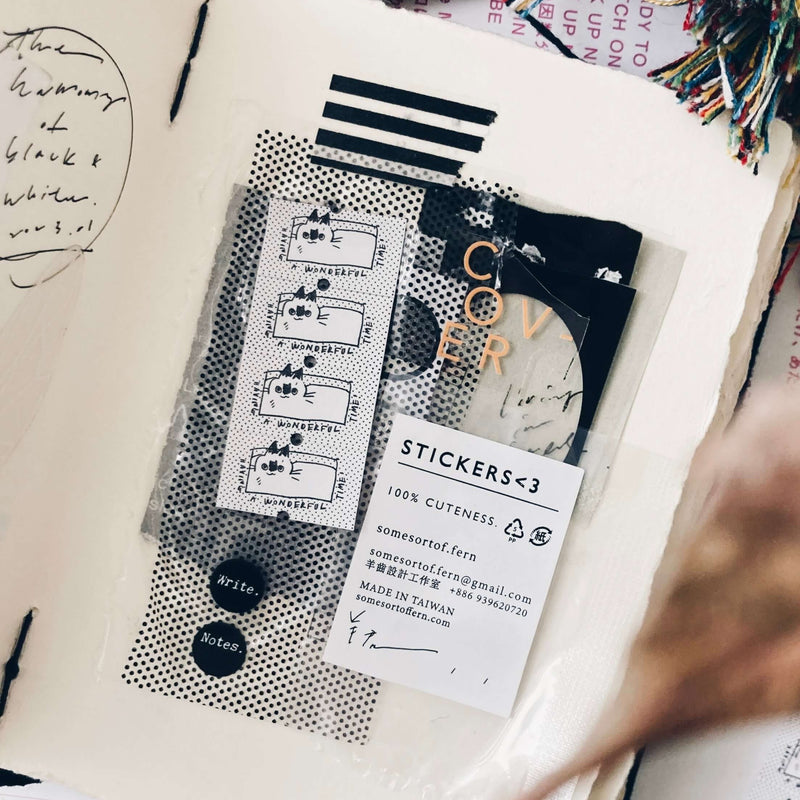 The
harmony
of
black &
white.
DY TO
TCH ON
K UP N
UP
BE
HAVING
A WONDERFUL
TIME!
HAVING
A WONDERFUL
TIME!
HAVING
A WONDERFUL
TIME!
HAVING
A WONDERFUL
TIME!
C
OV
ER
STICKERS<3
100% CUTENESS.
5
PP
紙
somesortof.fern
somesortof.fern@gmail.com
羊齒設計工作室 +886 939620720
MADE IN TAIWAN
somesortoffern.com
Write.
Notes.